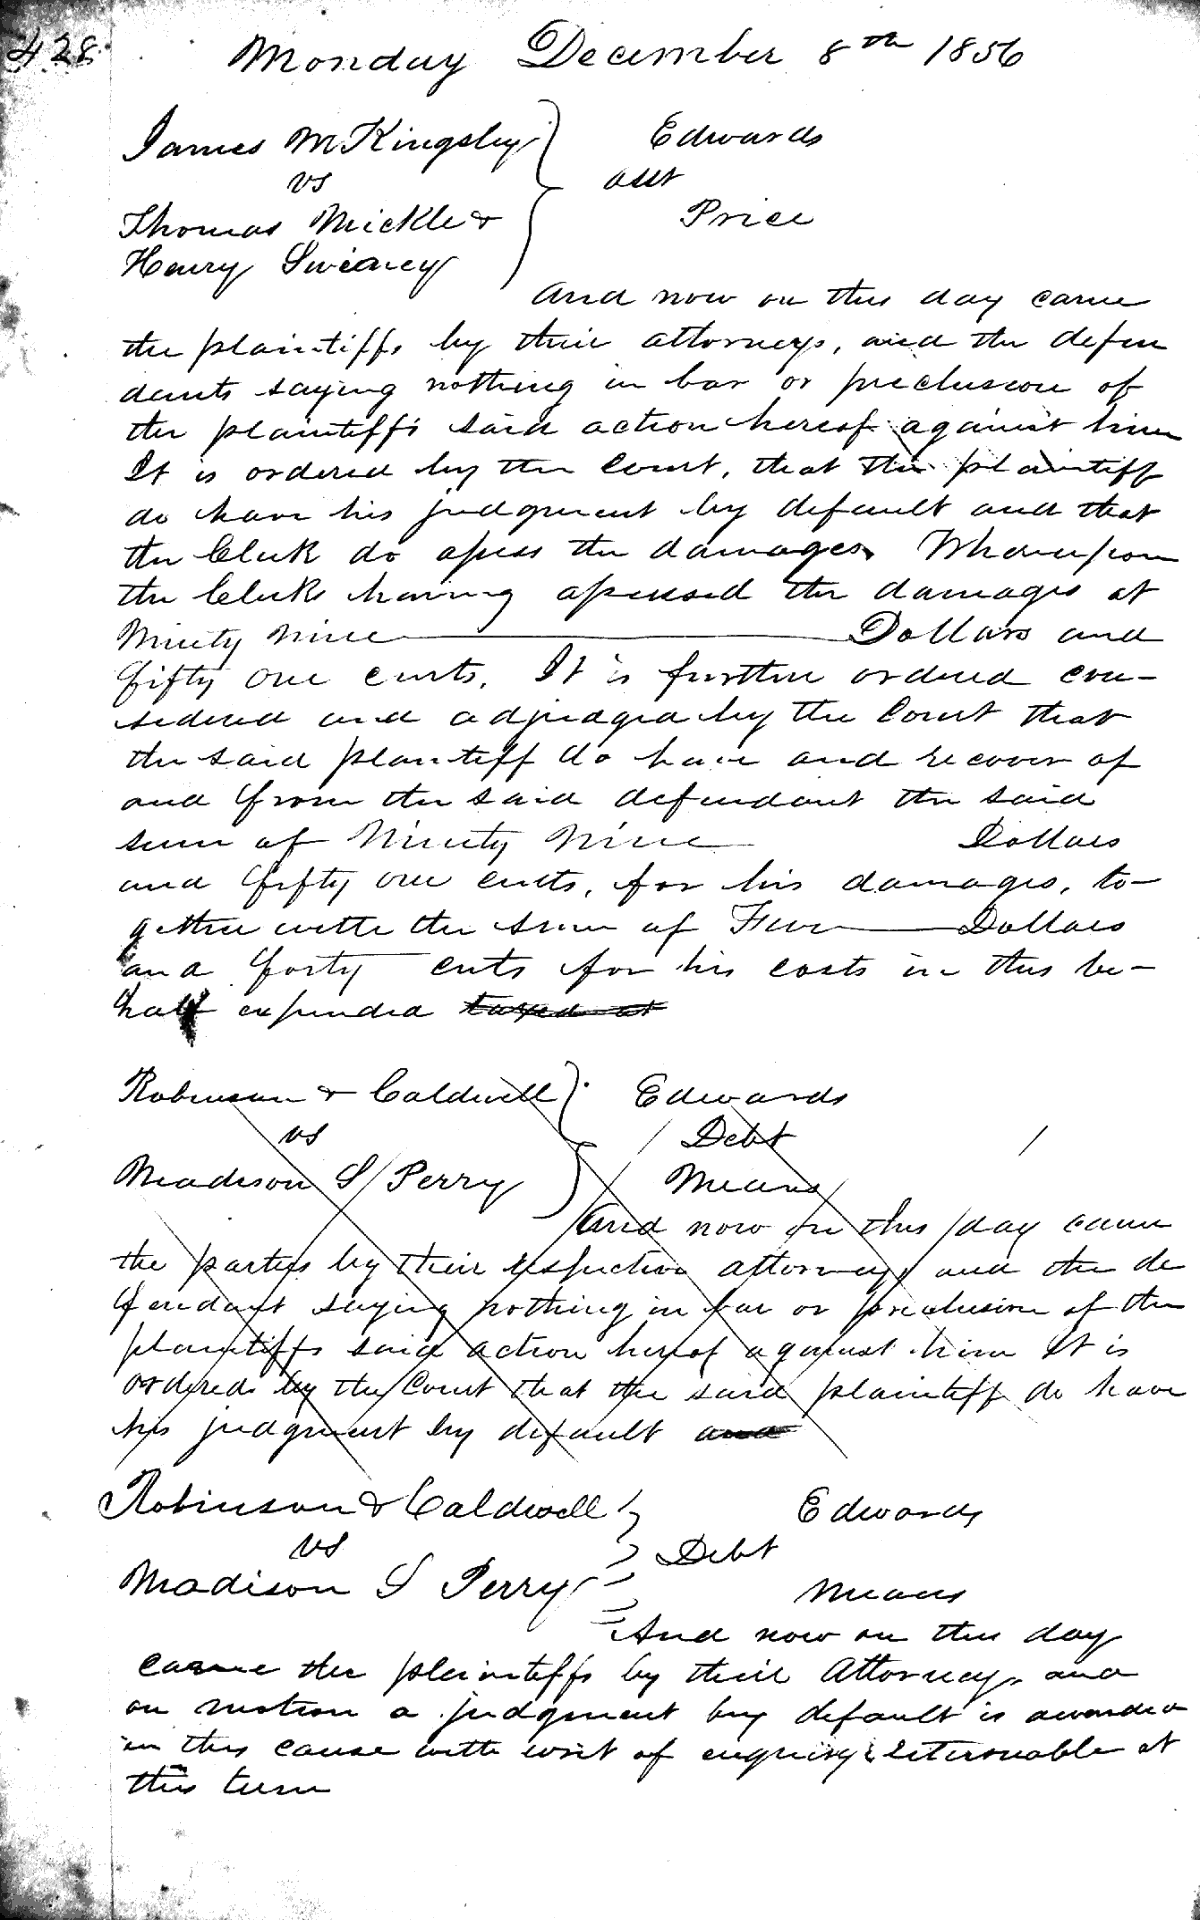 428
Monday December 8th 1856
James M Kingsley
Edwards
vs
asst
Thomas Mickle &
Price
Henry Sweaney
And now on this day came
the plaintiffs by their attorneys, and the defen
dants saying nothing in bar or preclusion of
the plaintiffs said action hereof against him
It is ordered by the Court, that the plaintiff
do have his judgment by default and that
the Clerk do assess the damages. Whereupon
the Clerk having assessed the damages at
Ninety Nine Dollars and
fifty one cents. It is further ordered con-
sidered and adjudged by the Court that
the said plaintiff do have and recover of
and from the said defendant the said
sum of Ninety Nine Dollars
and fifty one cents, for his damages, to-
gether with the sum of Dollars
and forty cents for his costs in this be-
half expended taxed at
Robinson & Caldwell
Edwards
vs
Debt
Madison S Perry
Means
And now on this day came
the parties by their respective attorneys and the de
fendant saying nothing in bar or preclusion of the
plaintiffs said action hereof against him It is
ordered by the Court that the said plaintiff do have
his judgment by default and
Robinson & Caldwell
Edwards
vs
Debt
Madison S Perry
Means
And now on this day
came the plaintiffs by their Attorneys and
on motion a judgment by default is awarded
in this cause with writ of enquiry returnable at
this term